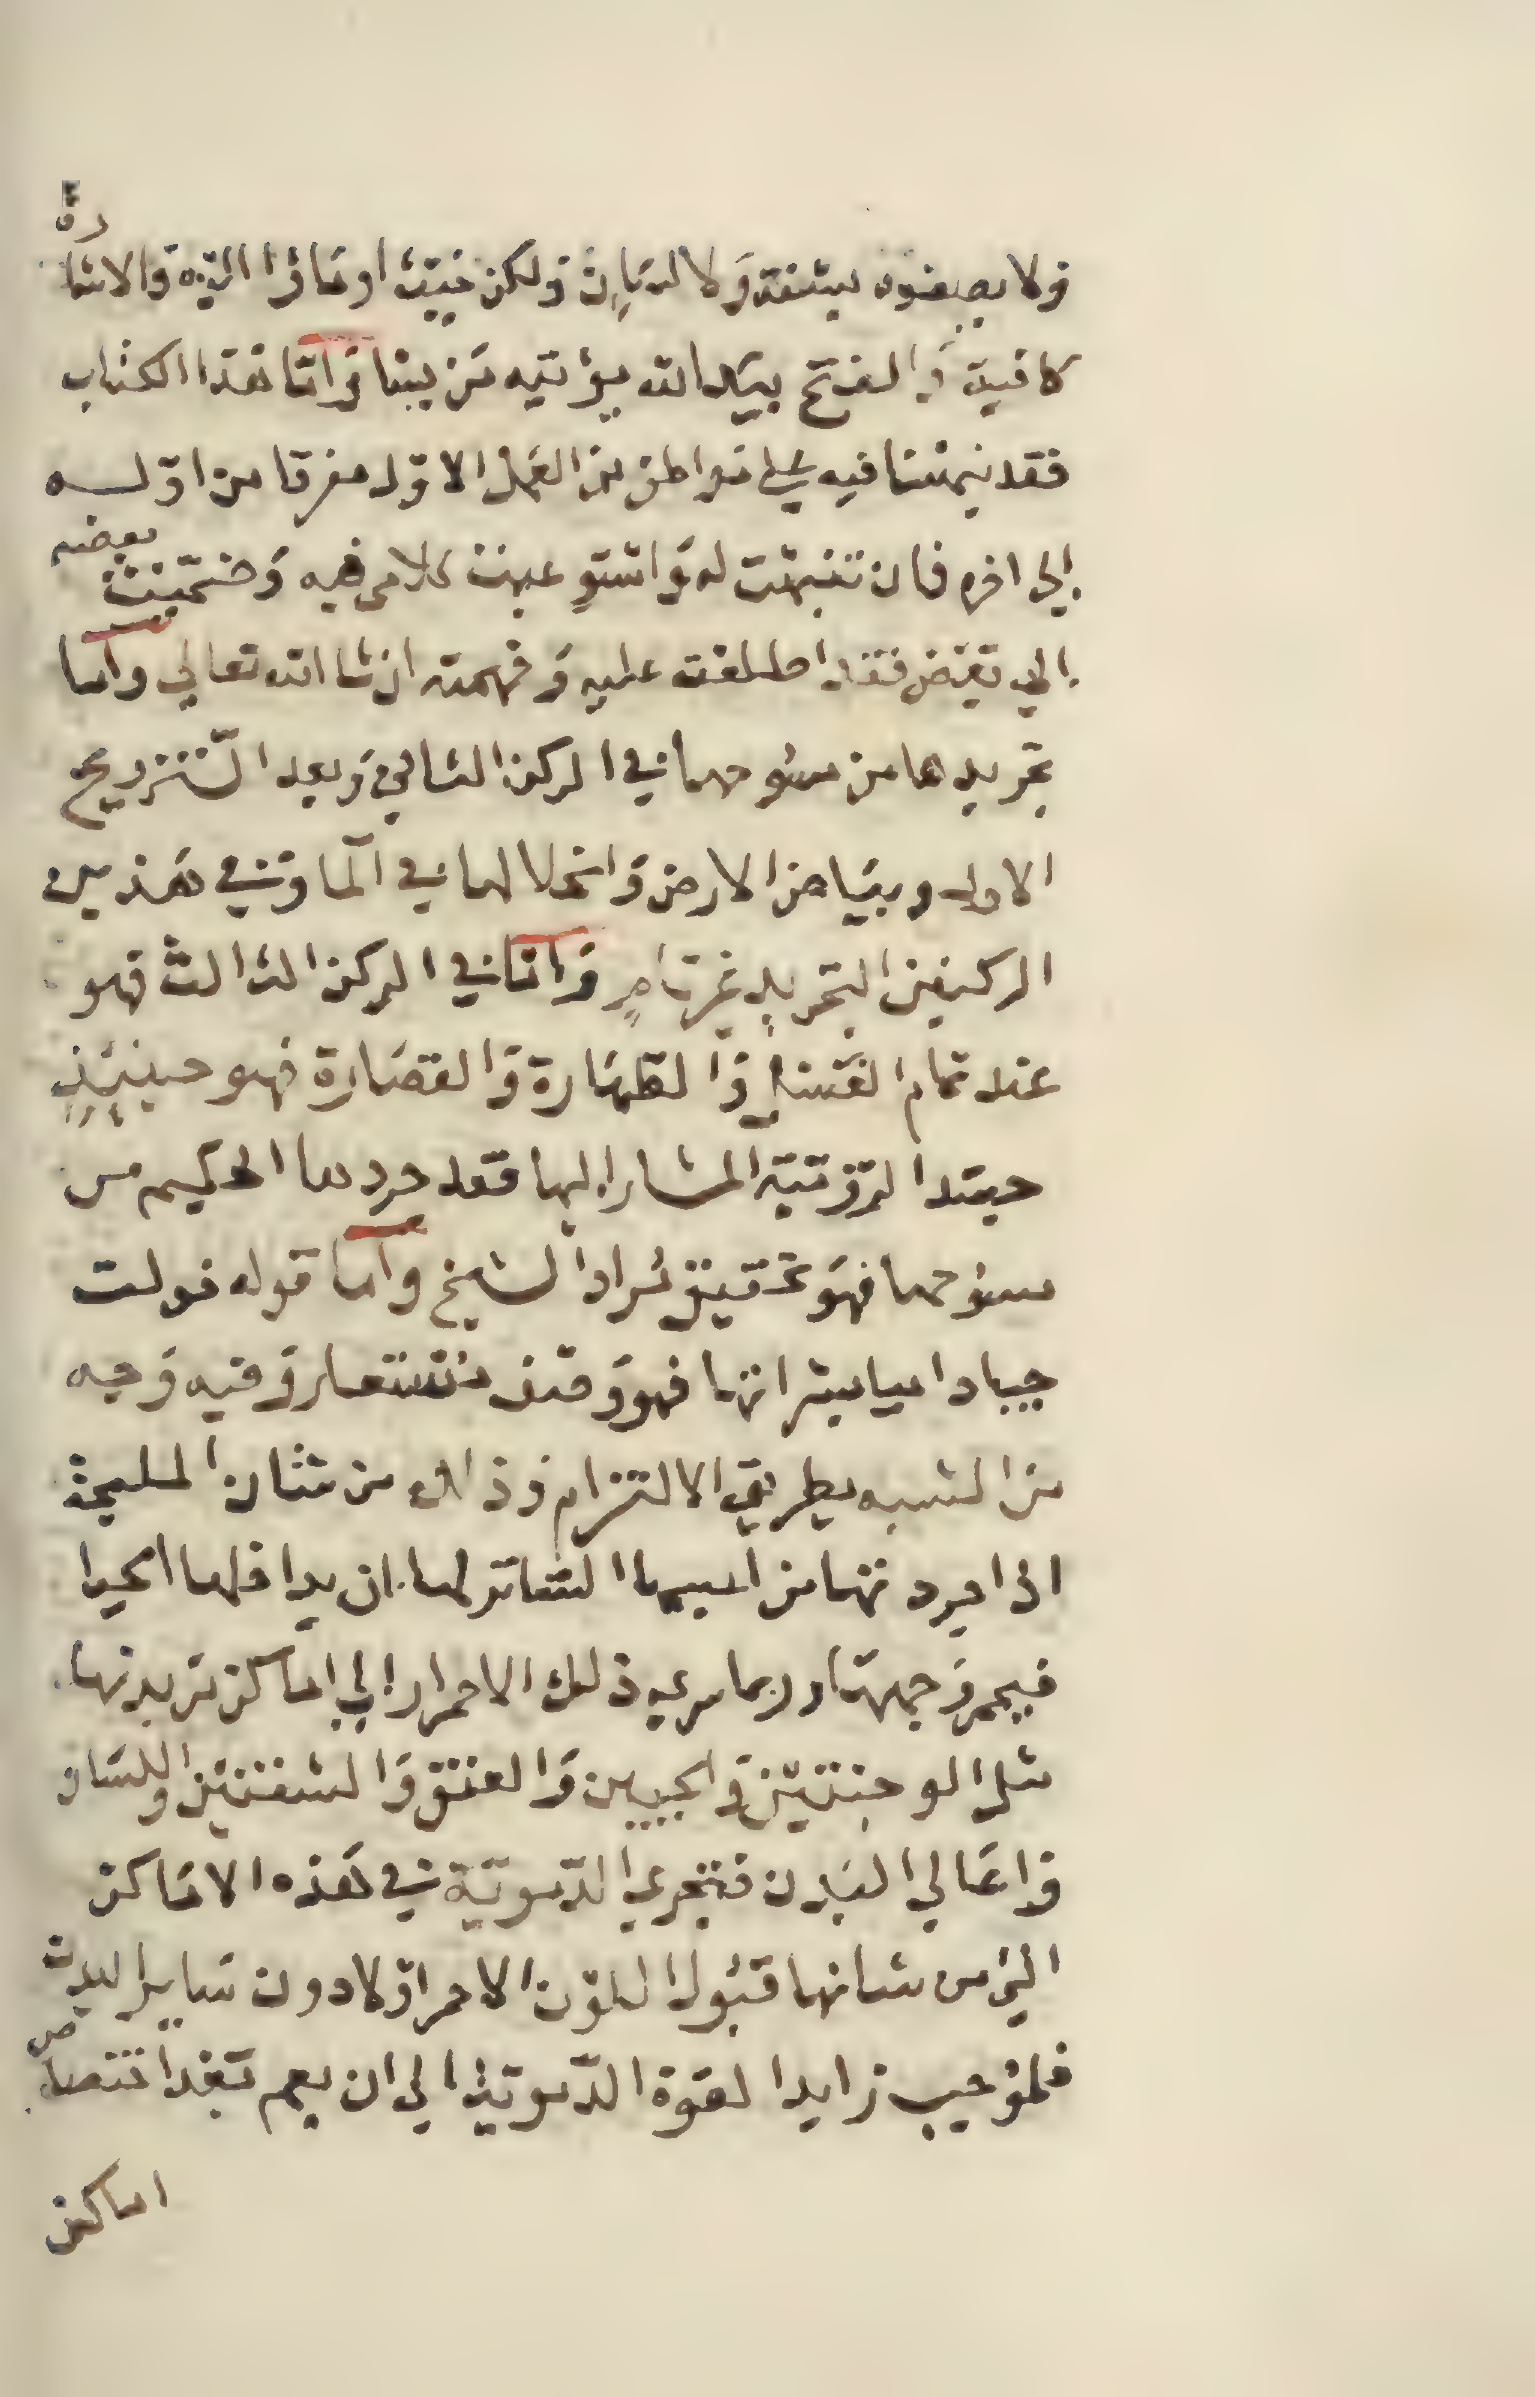 ولا يصفوه بشفة ولا لسان ولكن حيث اوماوا اليه والاشارة
كافية والفتح بيد الله يؤتيه من يشا واما هذا الكتاب
فقد نبهنا فيه على مواطن من العمل الاول مفرقا من اوله
الى اخره فان تنبهت له واستوعبت كلامي فيه وضممت بعضه
الى بعض فقد اطلعت عليه وفهمته ان شا الله تعالى واما
تجريدها من مسوحها في الركن الثاني وبعد التزويج
الاول وبياض الارض وانحلالها في الما وفي هذين
الركنين التجريد غير تام واما في الركن الثالث فهو
عند تمام الغسل والطهارة والقصارة فهو حينئذ
حيث المشار اليها فقد جردها الحكيم من
مسوحها فهو تحقيق مراد الشيخ واما قوله فولت
حيادا فهو وصف مستعار وفيه وجه
من الشبه بطريق الالتزام وذلك من شان المليحة
اذا جردتها من الساتر لها ان يداخلها الحيا
فيحمر وجهها وربما سرى ذلك الاحمرار الى اماكن من بدنها
مثل الوجنتين والجبين والعنق والشفتين واللسان
واعالي البدن فتجري الدموية في هذه الاماكن
التي من شانها قبول اللون الاحمر اولا دون ساير البدن
زايدا لقوة الدموية الى ان يعم بعد اختصاص
اماكن